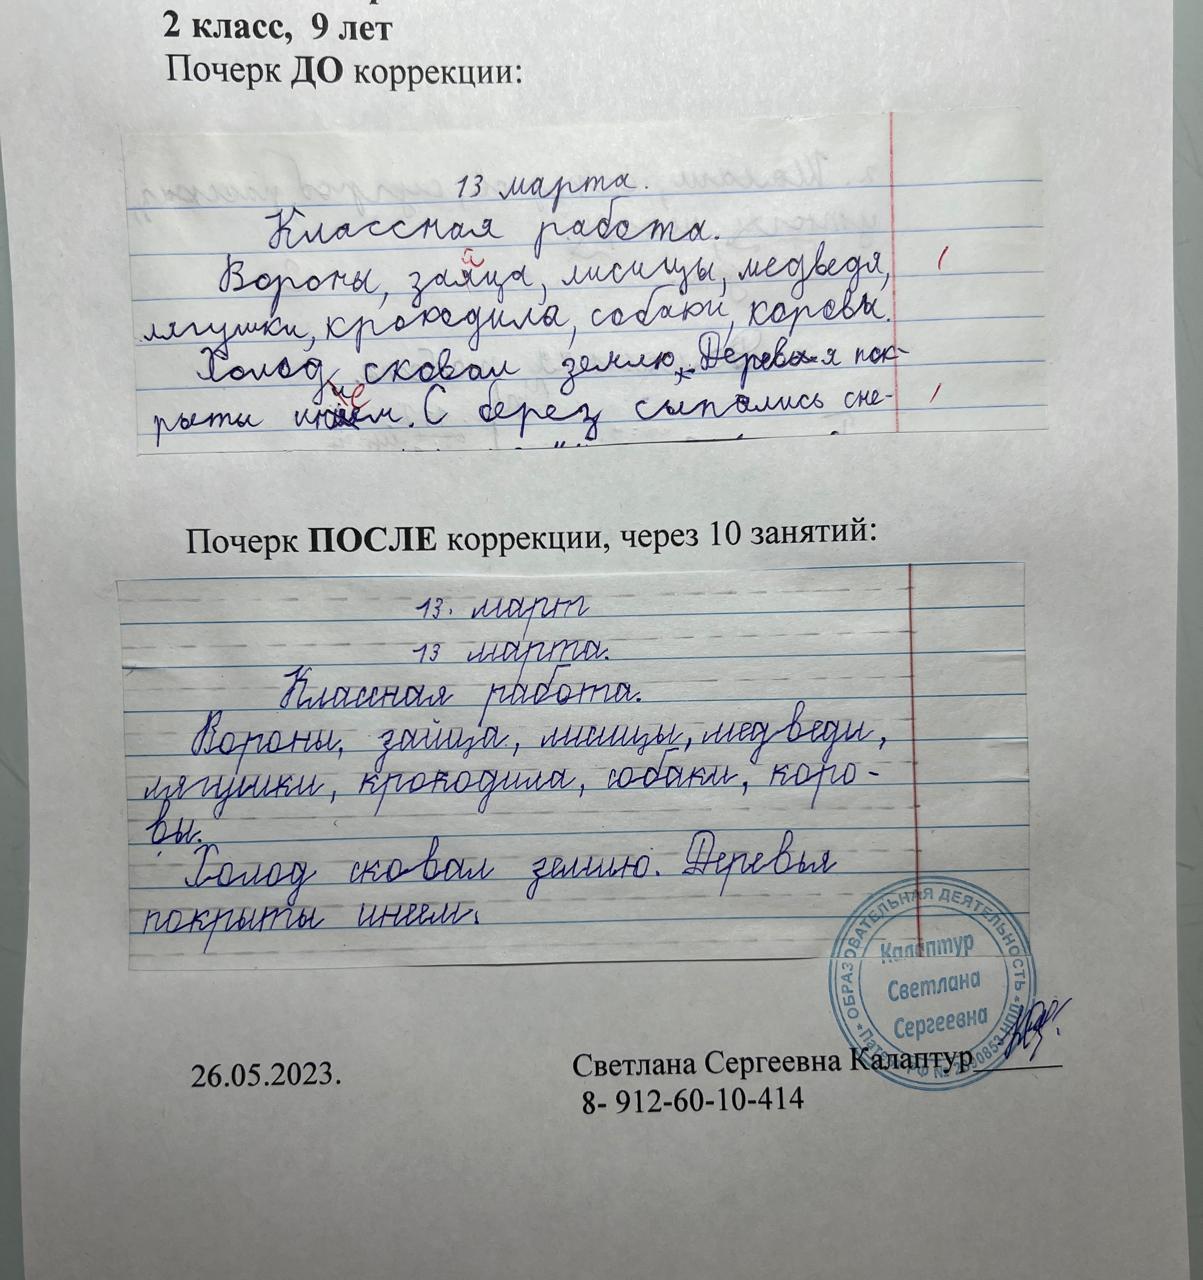 2 класс, 9 лет
Почерк ДО коррекции:
13 марта.
Классная работа.
Вороны, заяца, лисицы, медведя,
лягушки, крокодила, собаки, коровы.
Холод сковал землю. Деревья пок-
рыты инеем. С берез сыпались сне-
Почерк ПОСЛЕ коррекции, через 10 занятий:
13. март
13 марта.
Классная работа.
Вороны, зайца, лисицы, медведи,
лягушки, крокодила, собаки, коро-
вы.
Холод сковал землю. Деревья
покрыты инеем.
ОБРАЗОВАТЕЛЬНАЯ ДЕЯТЕЛЬНОСТЬ
Калаптур
Светлана
Сергеевна
26.05.2023.
Светлана Сергеевна Калаптур
8- 912-60-10-414